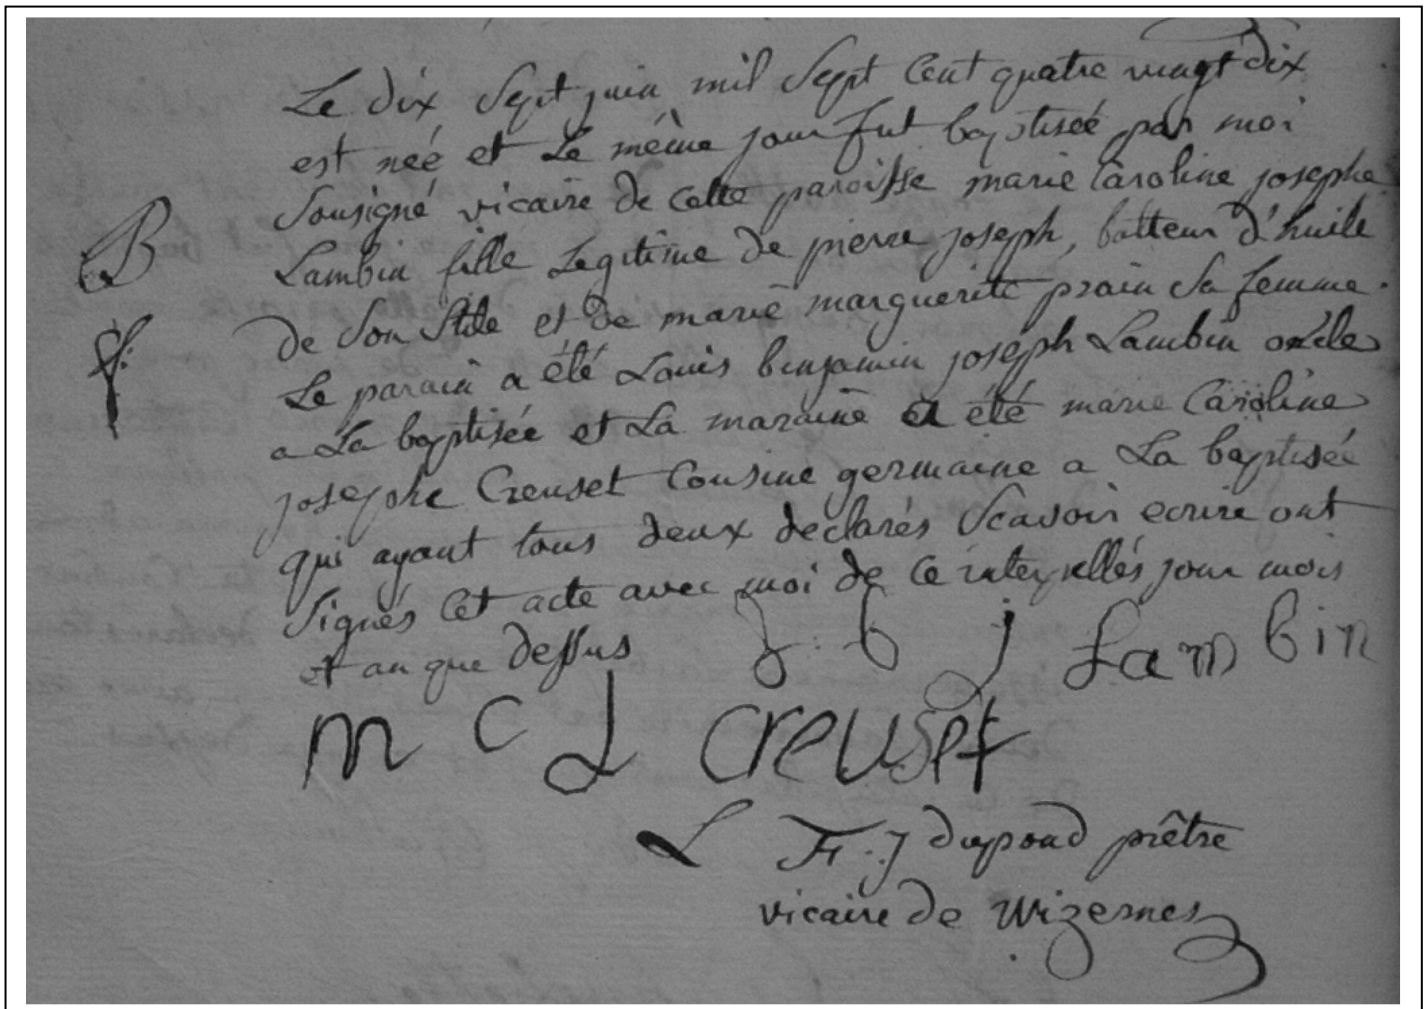 Le dix Sept juin mil Sept Cent quatre vingt dix
est neé et Le même jour fut baptiseé par moi
Sousigné vicaire de cette paroisse marie Caroline josephe
B
Lambin fille Legitime de pierre joseph, batteur d'huile
de Son Stile et de marie marguerite prain Sa femme.
f.
Le parain a été Louis benjamin joseph Lambin oncle
a La baptisée et La maraine a été marie Caroline
josephe Creuset Cousine germaine a La baptisée
qui ayant tous deux declarés Scavoir ecrire ont
Signés Cet acte avec moi de Ce interpellés jour mois
et an que dessus L b j Lambin
m C J creuset
L F. J dupond prêtre
vicaire de Wizernes